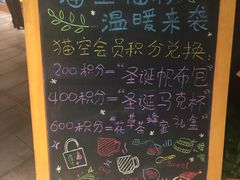 温暖来袭
猫空会员积分兑换:
200积分="圣诞帆布包"
400积分="圣诞马克杯"
600积分="花草茶蜂蜜礼盒"